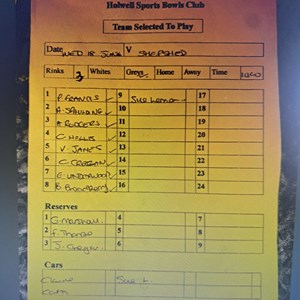 Holwell Sports Bowls Club
Team Selected To Play
Date WED 18 JUNE V SHEPSHED
Rinks 3 Whites Greys Home Away Time
1 P. FRANCIS 9 Sue Lemon 17
2 A. SPAULDING 10 18
3 A RODGERS 11 19
4 C HILLS 12 20
5 V. JAMES 13 21
6 14 22
7 E UNDERWOOD 15 23
8 16 24
Reserves
1 G Marshall 4 7
2 5 8
3 J. 6 9
Cars